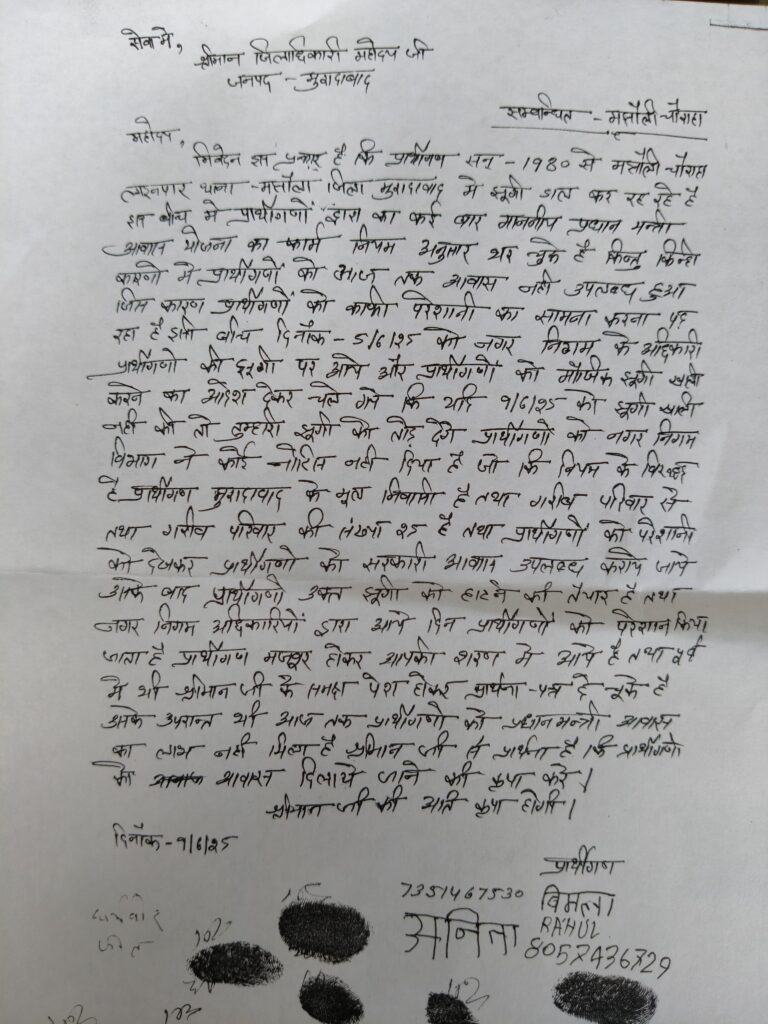 सेवा मे,
श्रीमान जिलाधिकारी महोदय जी
जनपद - मुरादाबाद
सम्बन्धित - मझौली चौराहा
महोदय,
निवेदन इस प्रकार है कि प्रार्थीगण सन् - 1980 से मझौली चौराहा
थाना - मझौला जिला मुरादाबाद मे झुग्गी डाल कर रह रहे है
इस बीच मे प्रार्थीगणों द्वारा का कई बार माननीय प्रधान मन्त्री
आवास योजना का फार्म नियम अनुसार भर चुके है किन्तु किन्ही
कारणो से प्रार्थीगणों को आज तक आवास नही उपलब्ध हुआ
जिस कारण प्रार्थीगणों को काफी परेशानी का सामना करना पड
रहा है इसी बीच दिनाँक - 5/6/25 को नगर निगम के अधिकारी
प्रार्थीगणो की झुग्गी पर आये और प्रार्थीगणों को मौखिक झुग्गी खाली
करने का आदेश देकर चले गये कि यदि 9/6/25 को झुग्गी खाली
नही की तो तुम्हारी झुग्गी को तोड़ देगे प्रार्थीगणों को नगर निगम
विभाग ने कोई नोटिस नही दिया है जो कि नियम के विरुद्ध
है प्रार्थीगण मुरादाबाद के मूल निवासी है तथा गरीब परिवार से
तथा गरीब परिवार की संख्या 25 है तथा प्रार्थीगणों की परेशानी
को देखकर प्रार्थीगणो को सरकारी आवास उपलब्ध कराये जाये
उसके बाद प्रार्थीगणो उक्त झुग्गी को हाटने को तैयार है तथा
नगर निगम अधिकारियों द्वारा आये दिन प्रार्थीगणों को परेशान किया
जाता है प्रार्थीगण मजबूर होकर आपकी शरण मे आये है तथा पूर्व
मे भी श्रीमान जी के समक्ष पेश होकर प्रार्थना-पत्र दे चूके है
उसके उपरान्त भी आज तक प्रार्थीगणो को प्रधानमन्त्री आवास
का लाभ नही मिला है श्रीमान जी से प्रार्थना है कि प्रार्थीगणो
को आवास दिलाये जाने की कृपा करे।
श्रीमान जी की अति कृपा होगी।
दिनाँक - 9/6/25
प्रार्थीगण
7351467530 विमला
अनिता RAHUL
8057436729